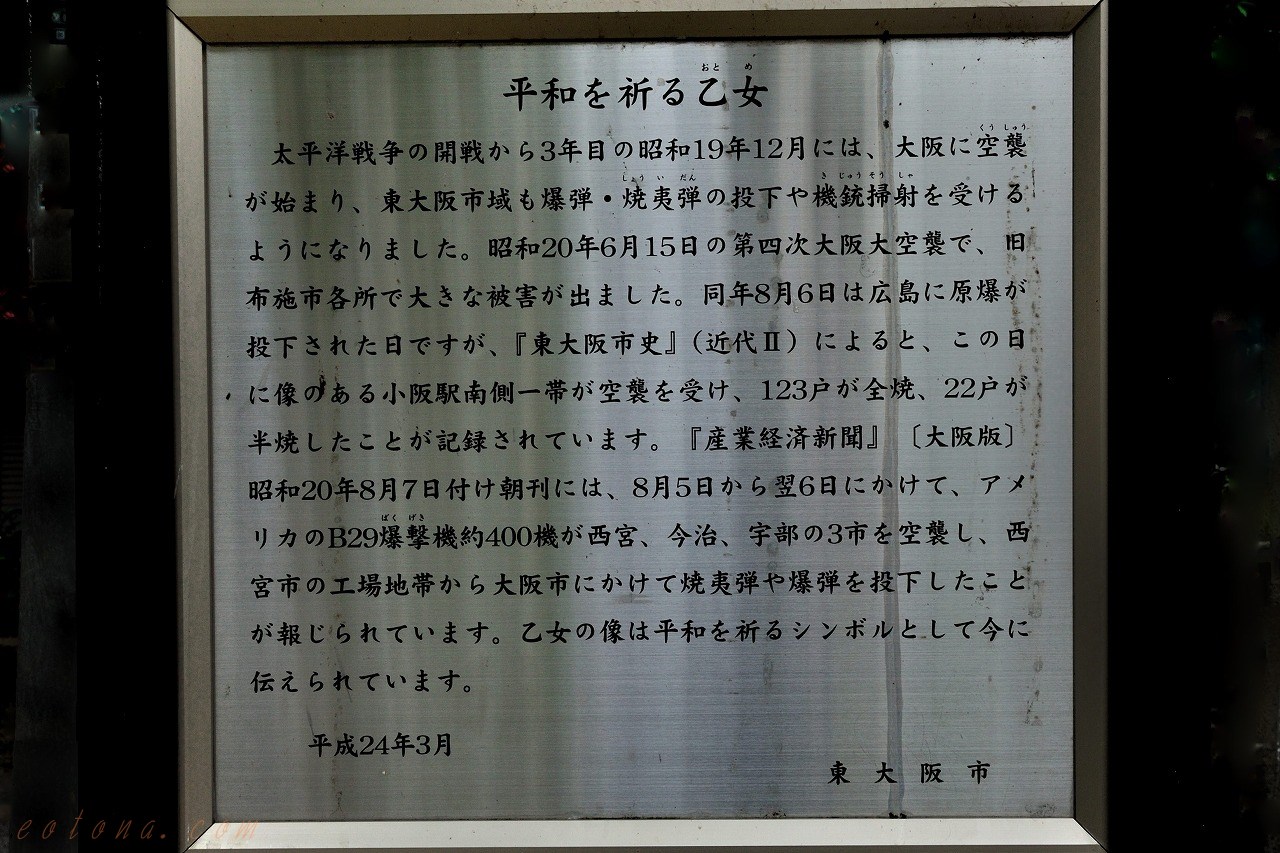 平和を祈る乙女
おとめ
太平洋戦争の開戦から3年目の昭和19年12月には、大阪に空襲
くうしゅう
が始まり、東大阪市域も爆弾・焼夷弾の投下や機銃掃射を受ける
しょういだん きじゅうそうしゃ
ようになりました。昭和20年6月15日の第四次大阪大空襲で、旧
布施市各所で大きな被害が出ました。同年8月6日は広島に原爆が
投下された日ですが、『東大阪市史』(近代Ⅱ)によると、この日
に像のある小阪駅南側一帯が空襲を受け、123戸が全焼、22戸が
半焼したことが記録されています。『産業経済新聞』〔大阪版〕
昭和20年8月7日付け朝刊には、8月5日から翌6日にかけて、アメ
リカのB29爆撃機約400機が西宮、今治、宇部の3市を空襲し、西
ばくげき
宮市の工場地帯から大阪市にかけて焼夷弾や爆弾を投下したこと
が報じられています。乙女の像は平和を祈るシンボルとして今に
伝えられています。
平成24年3月
東大阪市
eotona.com